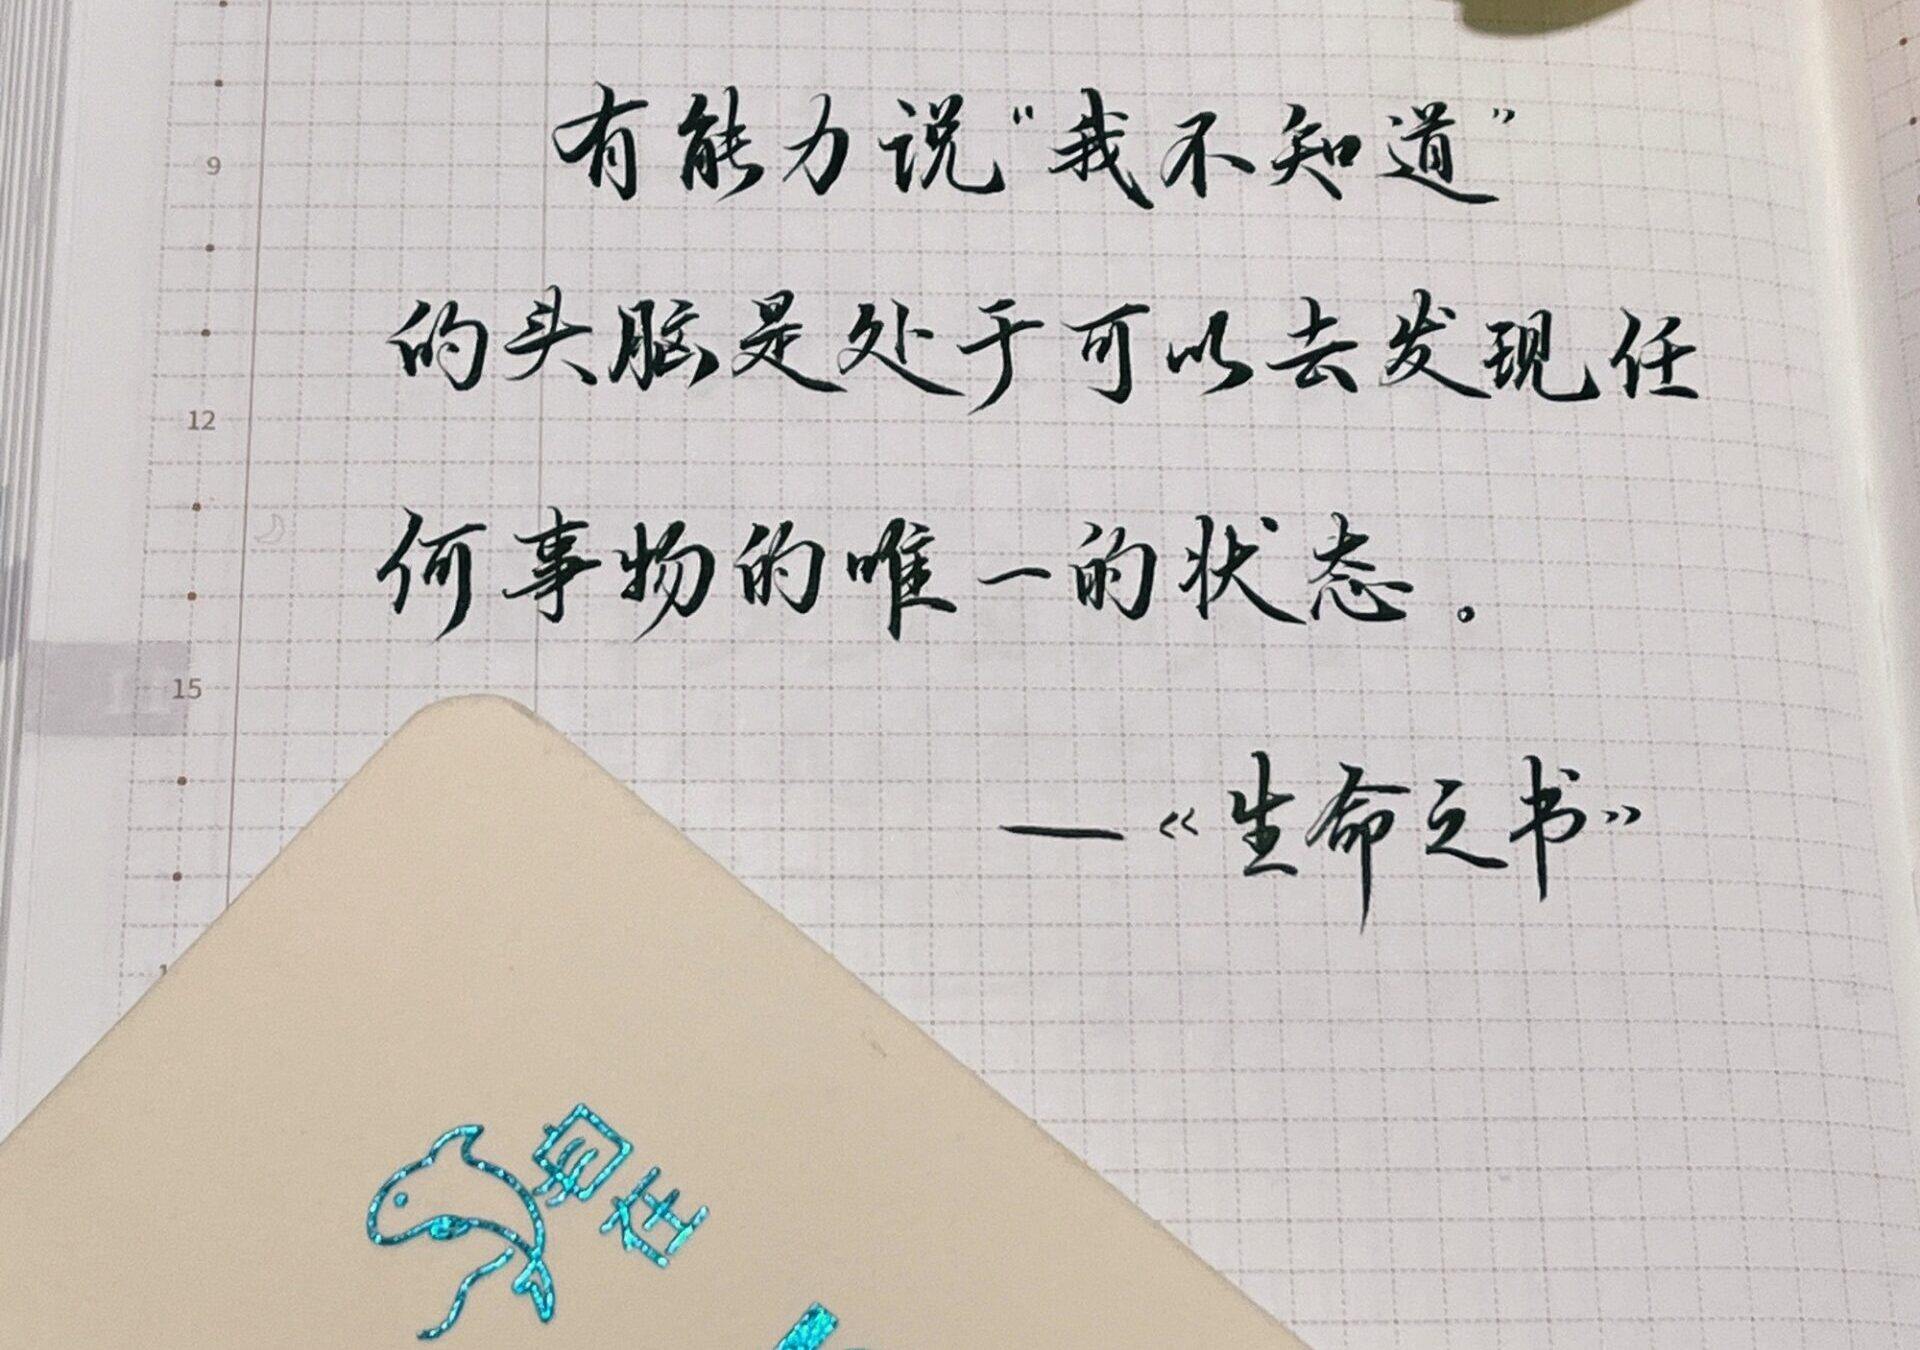 有能力说“我不知道”
9
的头脑是处于可以去发现任
12
何事物的唯一的状态。
15
—《生命之书》